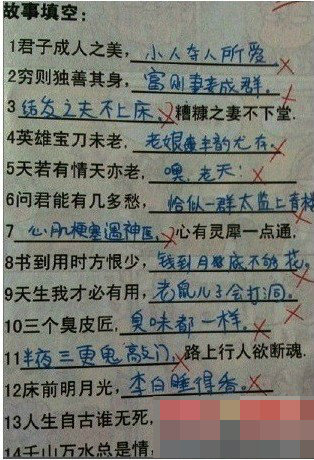 故事填空:
1君子成人之美,小人夺人所爱。
2穷则独善其身,富则妻妾成群。
3结发之夫不上床,糟糠之妻不下堂.
4英雄宝刀未老,老娘丰韵尤存。
5天若有情天亦老,噢,老天!
6问君能有几多愁,恰似一群太监上青楼
7心肌梗塞遇神医,心有灵犀一点通,
8书到用时方恨少,钱到月底不够花。
9天生我才必有用,老鼠儿子会打洞。
10三个臭皮匠,臭味都一样。
11半夜三更鬼敲门,路上行人欲断魂.
12床前明月光,李白睡得香。
13人生自古谁无死,
14千山万水总是情,